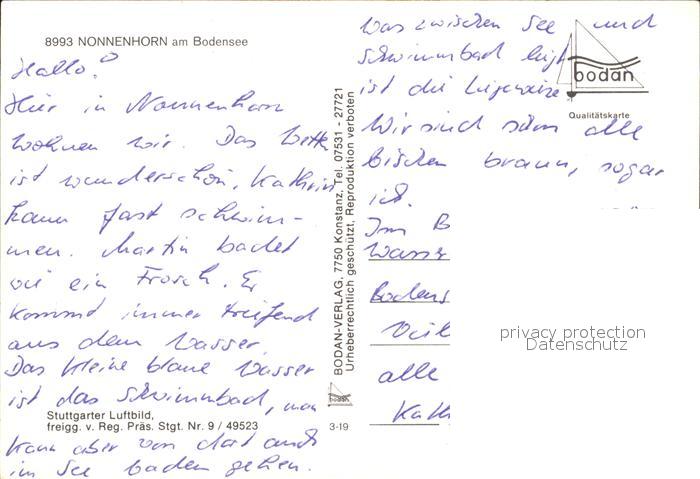 8993 NONNENHORN am Bodensee
Hallo!
Hier in Nonnenhorn
wohnen wir. Das Wetter
ist wunderschön, Kathrin
kann fast schwim-
men. Martin badet
wie ein Frosch. Er
kommt immer triefend
aus dem Wasser.
Das kleine blaue Wasser
ist das Schwimmbad, man
Stuttgarter Luftbild,
freigg. v. Reg. Präs. Stgt. Nr. 9 / 49523
kann aber von dort auch
im See baden gehen.
3-19
bodan
BODAN-VERLAG, 7750 Konstanz, Tel. 07531 - 27721
Urheberrechtlich geschützt. Reproduktion verboten
Was zwischen See und
Schwimmbad liegt
ist die Liegewiese
bodan
Qualitätskarte
Wir sind schon alle
bischen braun, sogar
ich.
Im B
Wasser
Bodens
Viel
alle
Kath
privacy protection
Datenschutz